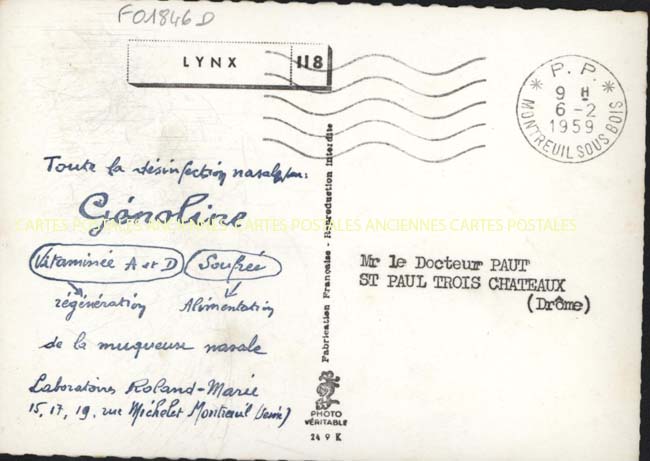 F01846D
LYNX 118
P.P.
9 H
6-2
1959
MONTREUIL SOUS BOIS
Toute la désinfection nasale par:
Génoline
CARTES POSTALES ANCIENNES CARTES POSTALES ANCIENNES CARTES POSTALES
Vitaminée A et D Soufrée
régénération Alimentation
de la muqueuse nasale
Laboratoires Roland-Marie
15, 17, 19, rue Michelet Montreuil (Seine)
Fabrication Française - Reproduction interdite
PHOTO
VÉRITABLE
249 K
Mr le Docteur PAUT
ST PAUL TROIS CHATEAUX
(Drôme)